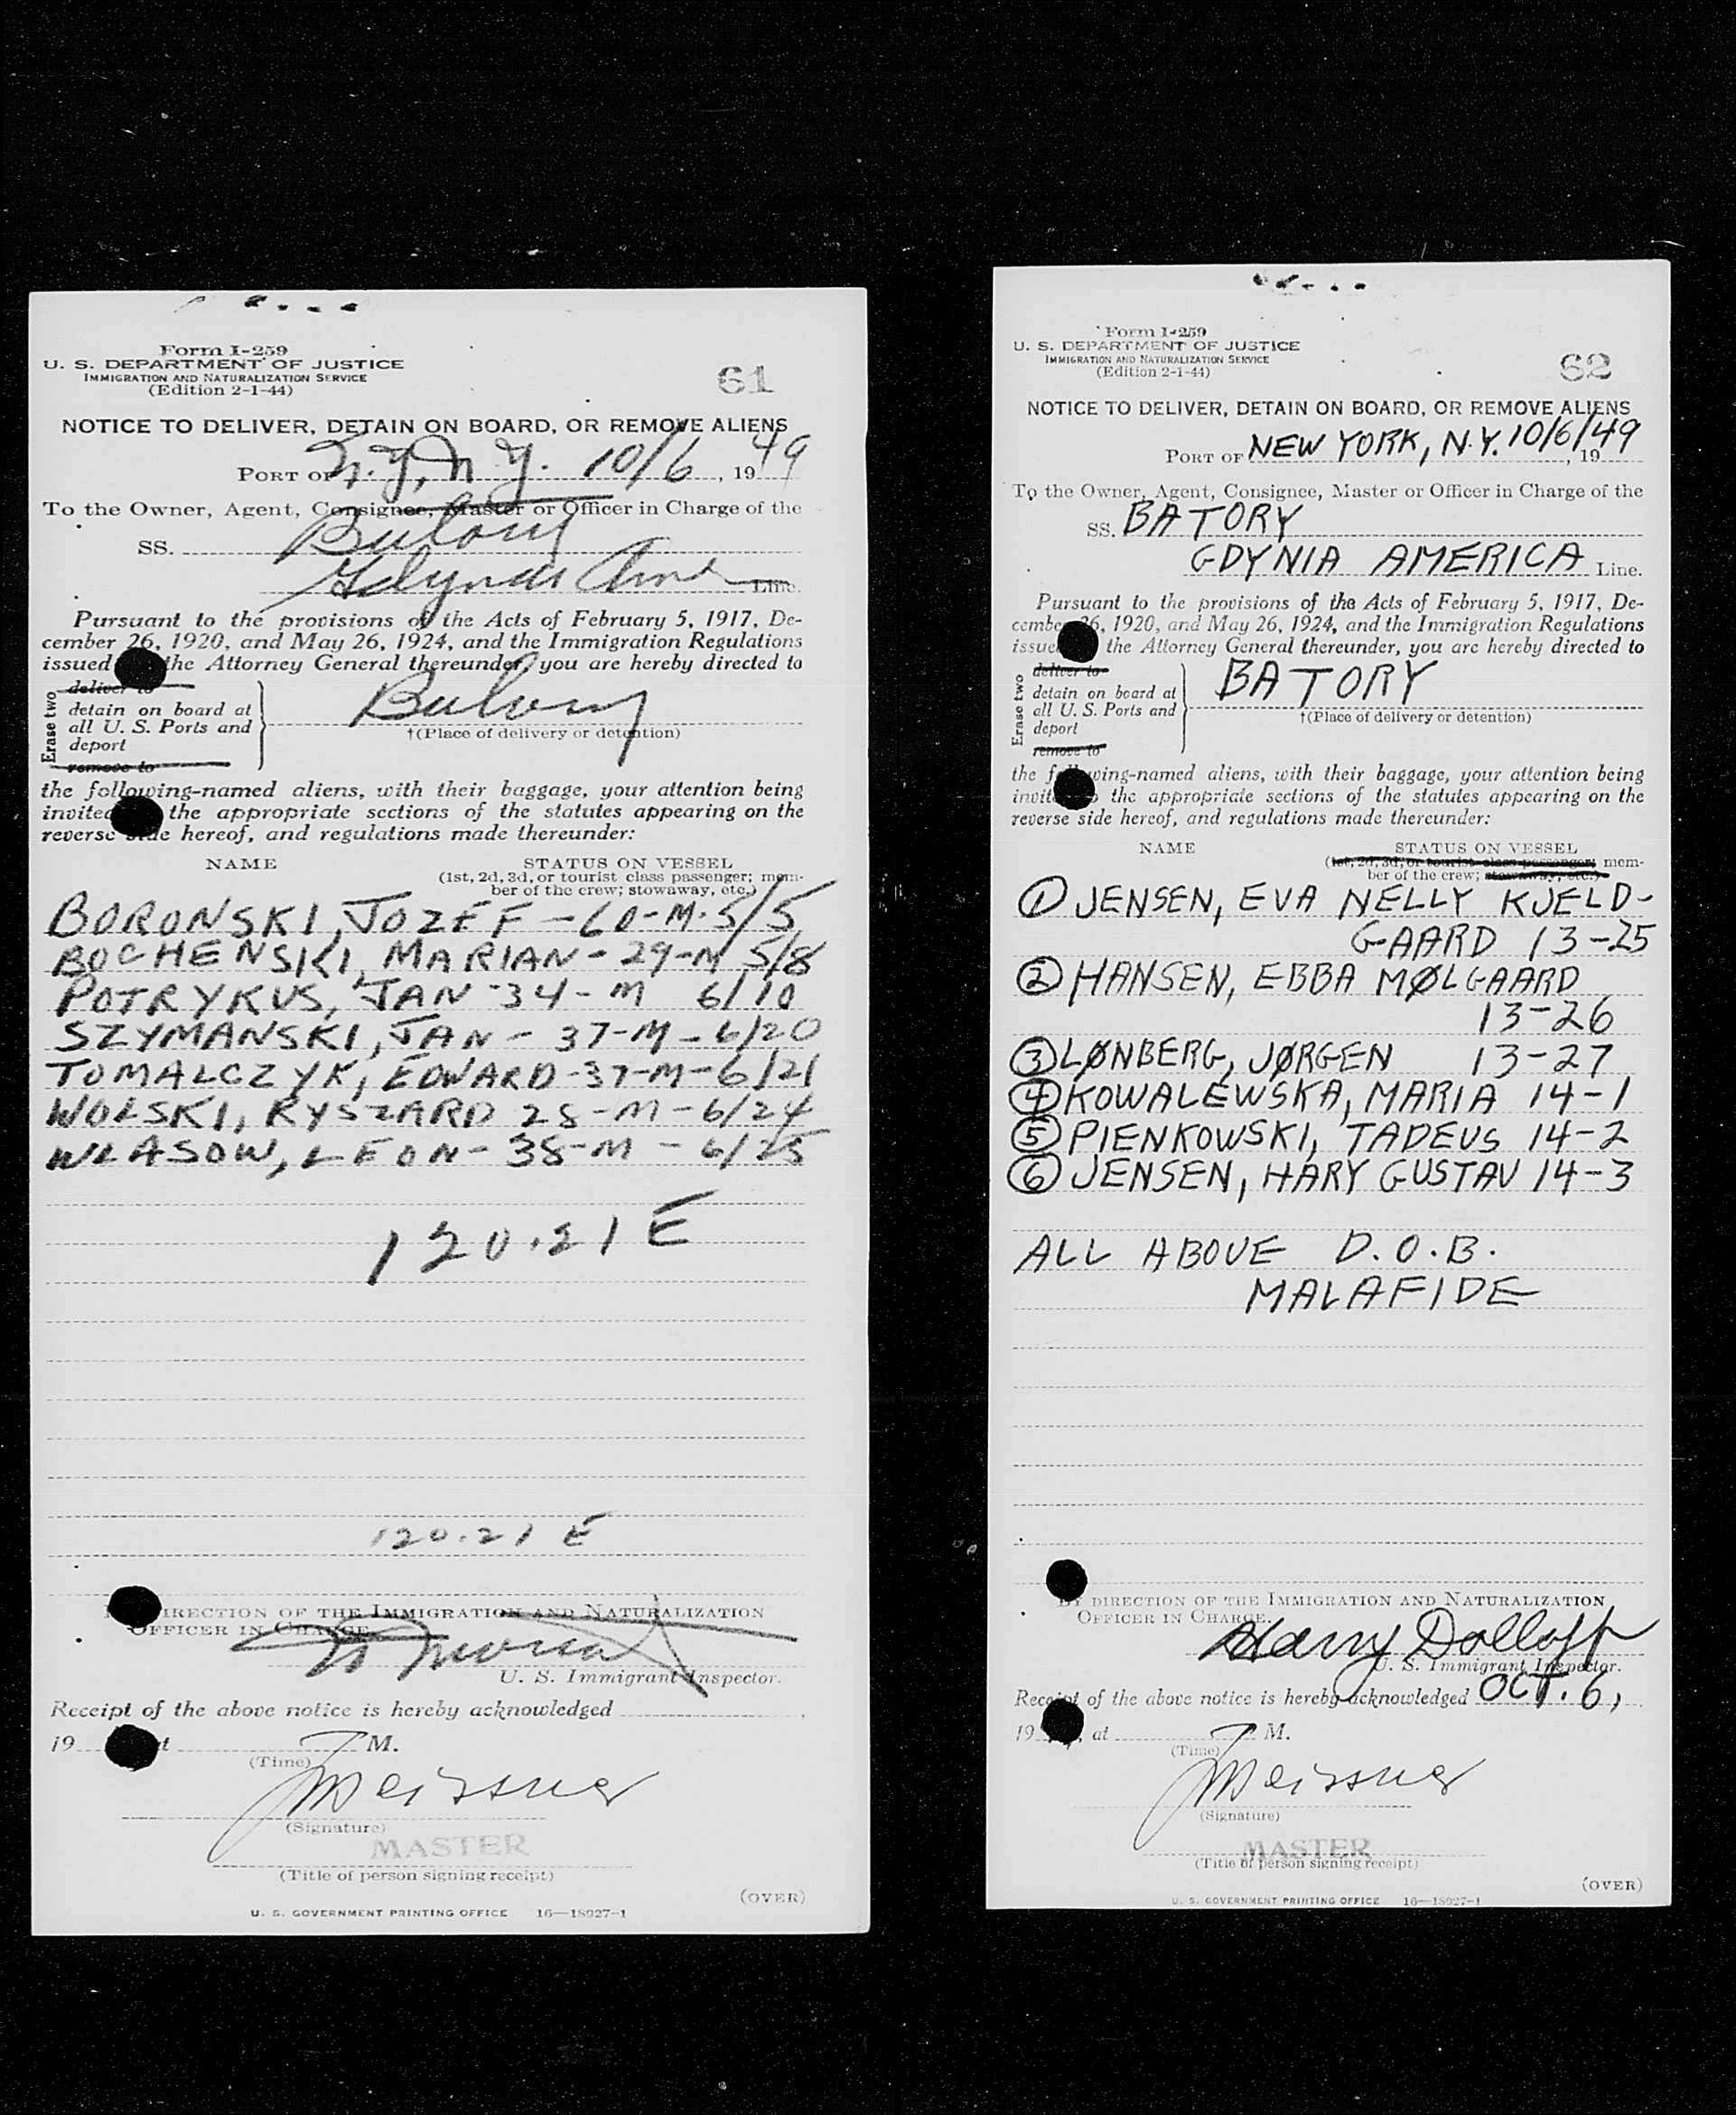 Form I-259
U. S. DEPARTMENT OF JUSTICE
IMMIGRATION AND NATURALIZATION SERVICE
(Edition 2-1-44)
61
NOTICE TO DELIVER, DETAIN ON BOARD, OR REMOVE ALIENS
PORT OF N.Y, N.Y. 10/6, 1949
To the Owner, Agent, Consignee, Master or Officer in Charge of the
SS. Batory
Gdynia Ame Line.
Pursuant to the provisions of the Acts of February 5, 1917, De-
cember 26, 1920, and May 26, 1924, and the Immigration Regulations
issued the Attorney General thereunder, you are hereby directed to
Erase two
deliver to
detain on board at
all U. S. Ports and
deport
remove to
Batory
†(Place of delivery or detention)
the following-named aliens, with their baggage, your attention being
invited the appropriate sections of the statutes appearing on the
reverse side hereof, and regulations made thereunder:
NAME STATUS ON VESSEL
(1st, 2d, 3d, or tourist class passenger; mem-
ber of the crew; stowaway, etc.)
BORONSKI, JOZEF - 60-M. 5/5
BOCHENSKI, MARIAN - 29-M 5/8
POTRYKUS, JAN - 34 - M 6/10
SZYMANSKI, JAN - 37-M - 6/20
TOMALCZYK, EDWARD - 37-M - 6/21
WOLSKI, RYSZARD 28 - M - 6/24
WLASOW, LEON - 38-M - 6/25
120.21 E
120.21 E
DIRECTION OF THE IMMIGRATION AND NATURALIZATION
OFFICER IN CHARGE.
U. S. Immigrant Inspector.
Receipt of the above notice is hereby acknowledged
19 at M.
(Time)
Meissner
(Signature)
MASTER
(Title of person signing receipt)
(OVER)
U. S. GOVERNMENT PRINTING OFFICE 16—18927-1
Form I-259
U. S. DEPARTMENT OF JUSTICE
IMMIGRATION AND NATURALIZATION SERVICE
(Edition 2-1-44)
62
NOTICE TO DELIVER, DETAIN ON BOARD, OR REMOVE ALIENS
PORT OF NEW YORK, N.Y. 10/6/49, 19
To the Owner, Agent, Consignee, Master or Officer in Charge of the
SS. BATORY
GDYNIA AMERICA Line.
Pursuant to the provisions of the Acts of February 5, 1917, De-
cember 26, 1920, and May 26, 1924, and the Immigration Regulations
issued the Attorney General thereunder, you are hereby directed to
Erase two
deliver to
detain on board at
all U. S. Ports and
deport
remove to
BATORY
†(Place of delivery or detention)
the following-named aliens, with their baggage, your attention being
invited the appropriate sections of the statutes appearing on the
reverse side hereof, and regulations made thereunder:
NAME STATUS ON VESSEL
(1st, 2d, 3d, or tourist class passenger; mem-
ber of the crew; stowaway, etc.)
① JENSEN, EVA NELLY KJELD-
GAARD 13-25
② HANSEN, EBBA MØLGAARD
13-26
③ LØNBERG, JØRGEN 13-27
④ KOWALEWSKA, MARIA 14-1
⑤ PIENKOWSKI, TADEUS 14-2
⑥ JENSEN, HARY GUSTAV 14-3
ALL ABOVE D.O.B.
MALAFIDE
BY DIRECTION OF THE IMMIGRATION AND NATURALIZATION
OFFICER IN CHARGE.
Harry Dolloff
U. S. Immigrant Inspector.
Receipt of the above notice is hereby acknowledged OCT. 6,
19 , at M.
(Time)
Meissner
(Signature)
MASTER
(Title of person signing receipt)
(OVER)
U. S. GOVERNMENT PRINTING OFFICE 16—18927-1